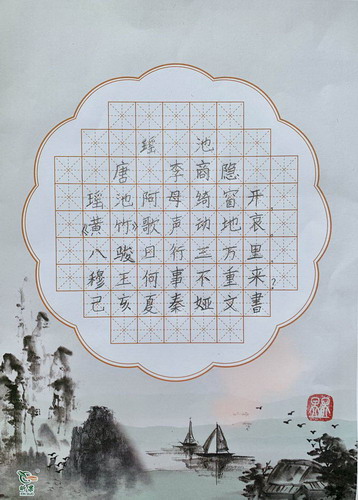 瑶池
唐 李商隐
瑶池阿母绮窗开，
《黄竹》歌声动地哀。
八骏日行三万里，
穆王何事不重来？
己亥夏秦娅文書